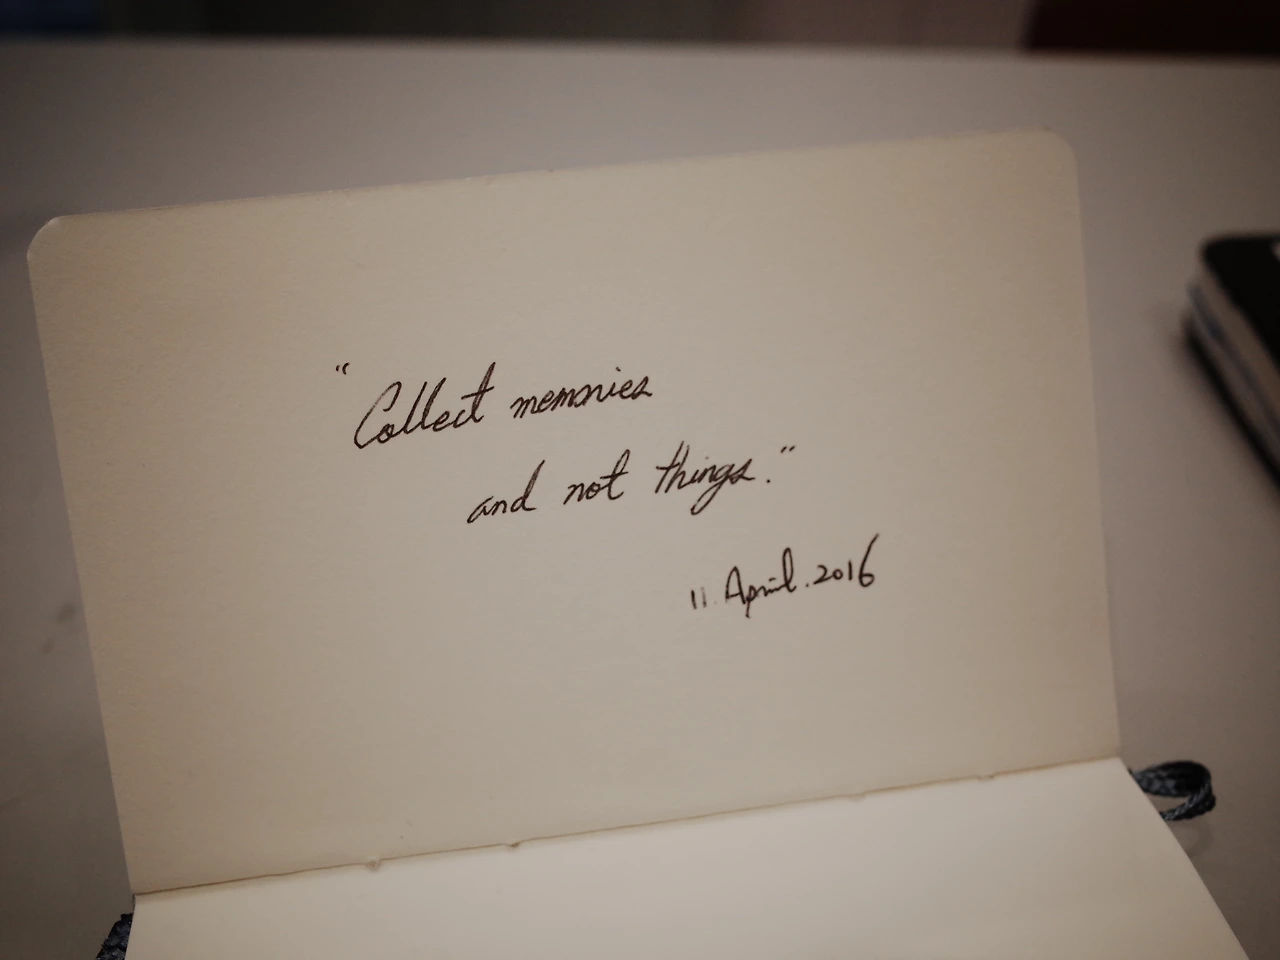 "Collect memories
and not things."
11. April. 2016